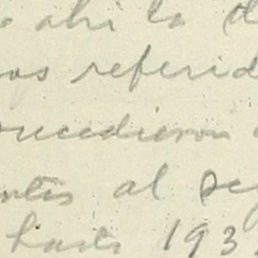 ahi la d
os referid
sucedieron
ntes al se
hasta 193